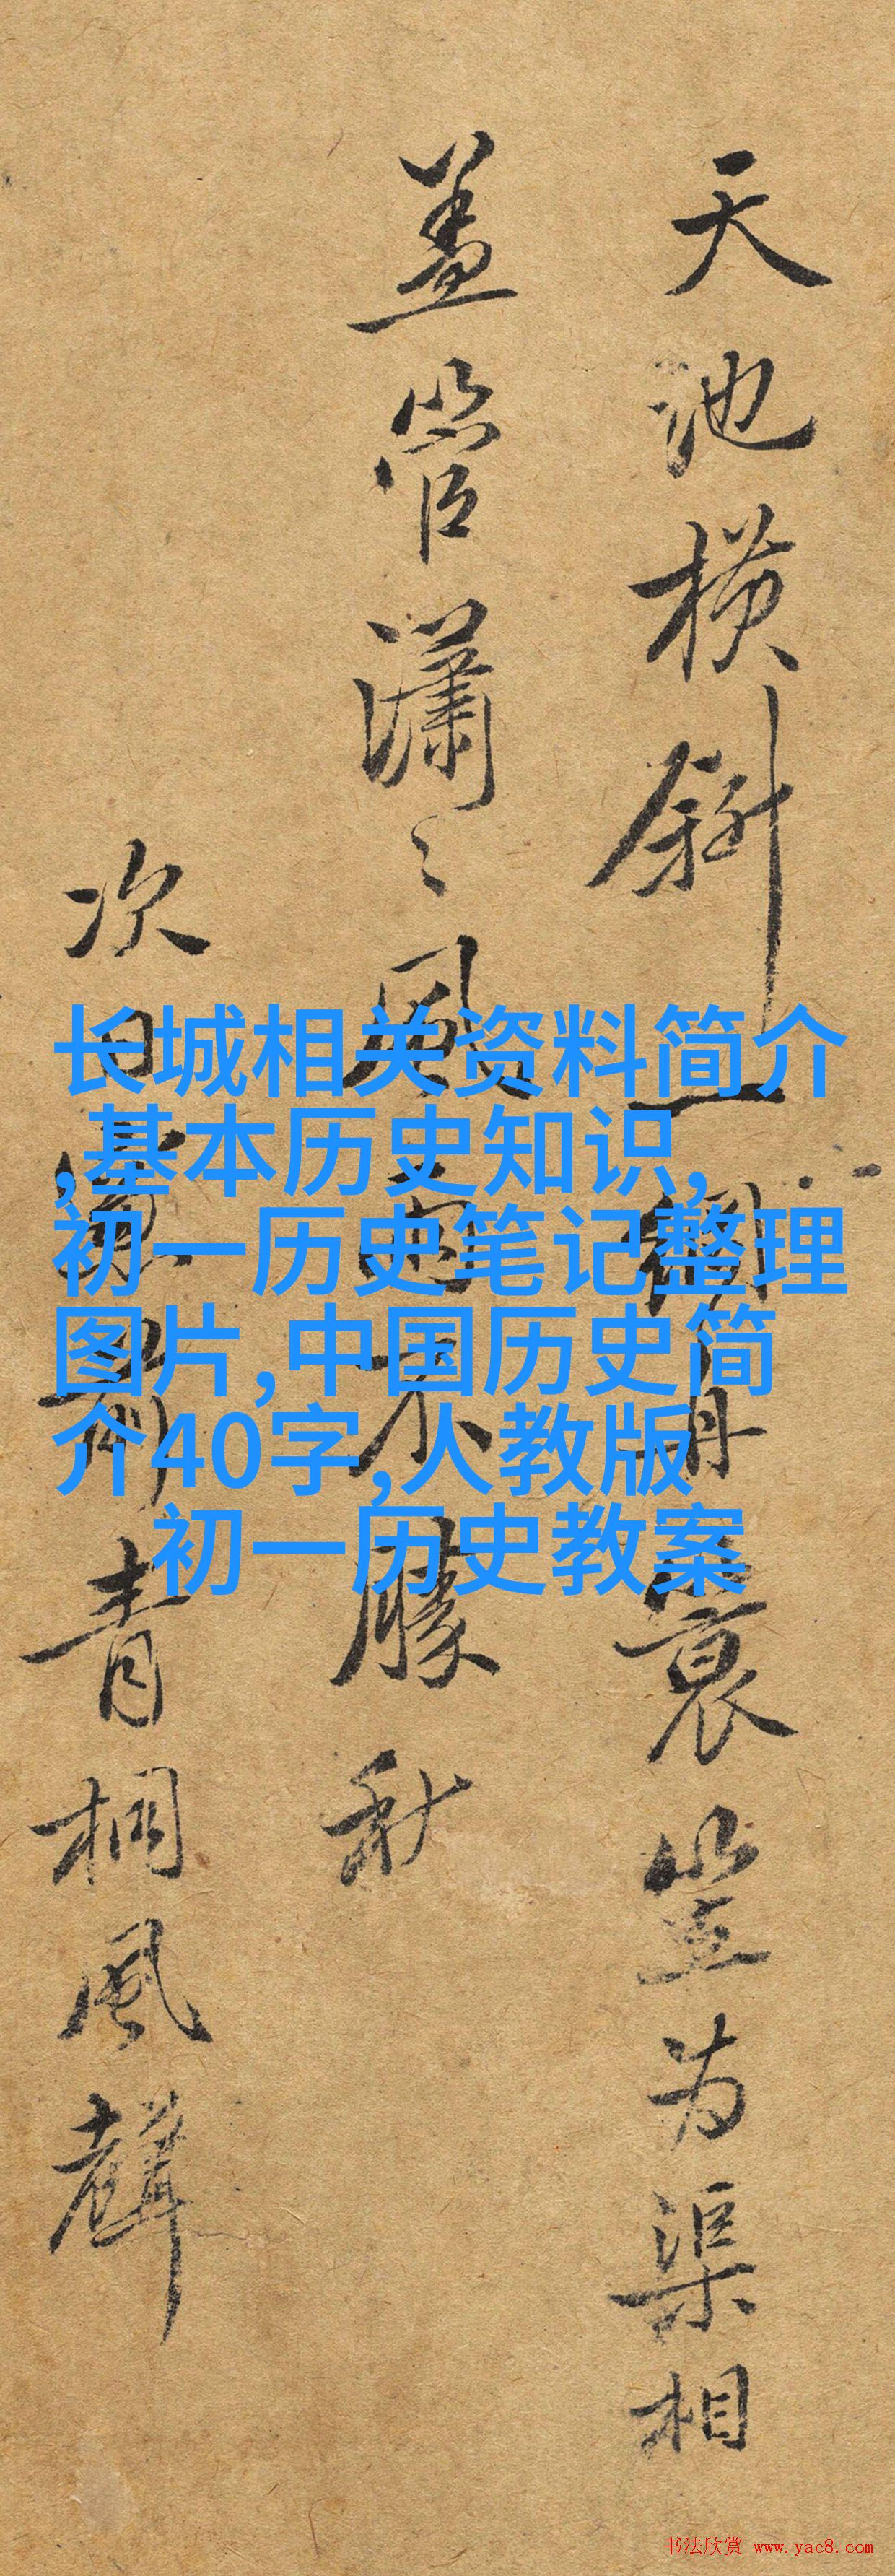 天池橫斜一
蓑笠为渠相
盖管瀟〻風
不勝秋
次日
青桐風聲
长城相关资料简介
,基本历史知识,
初一历史笔记整理
图片,中国历史简
介40字,人教版
初一历史教案
书法欣赏 www.yac8.com